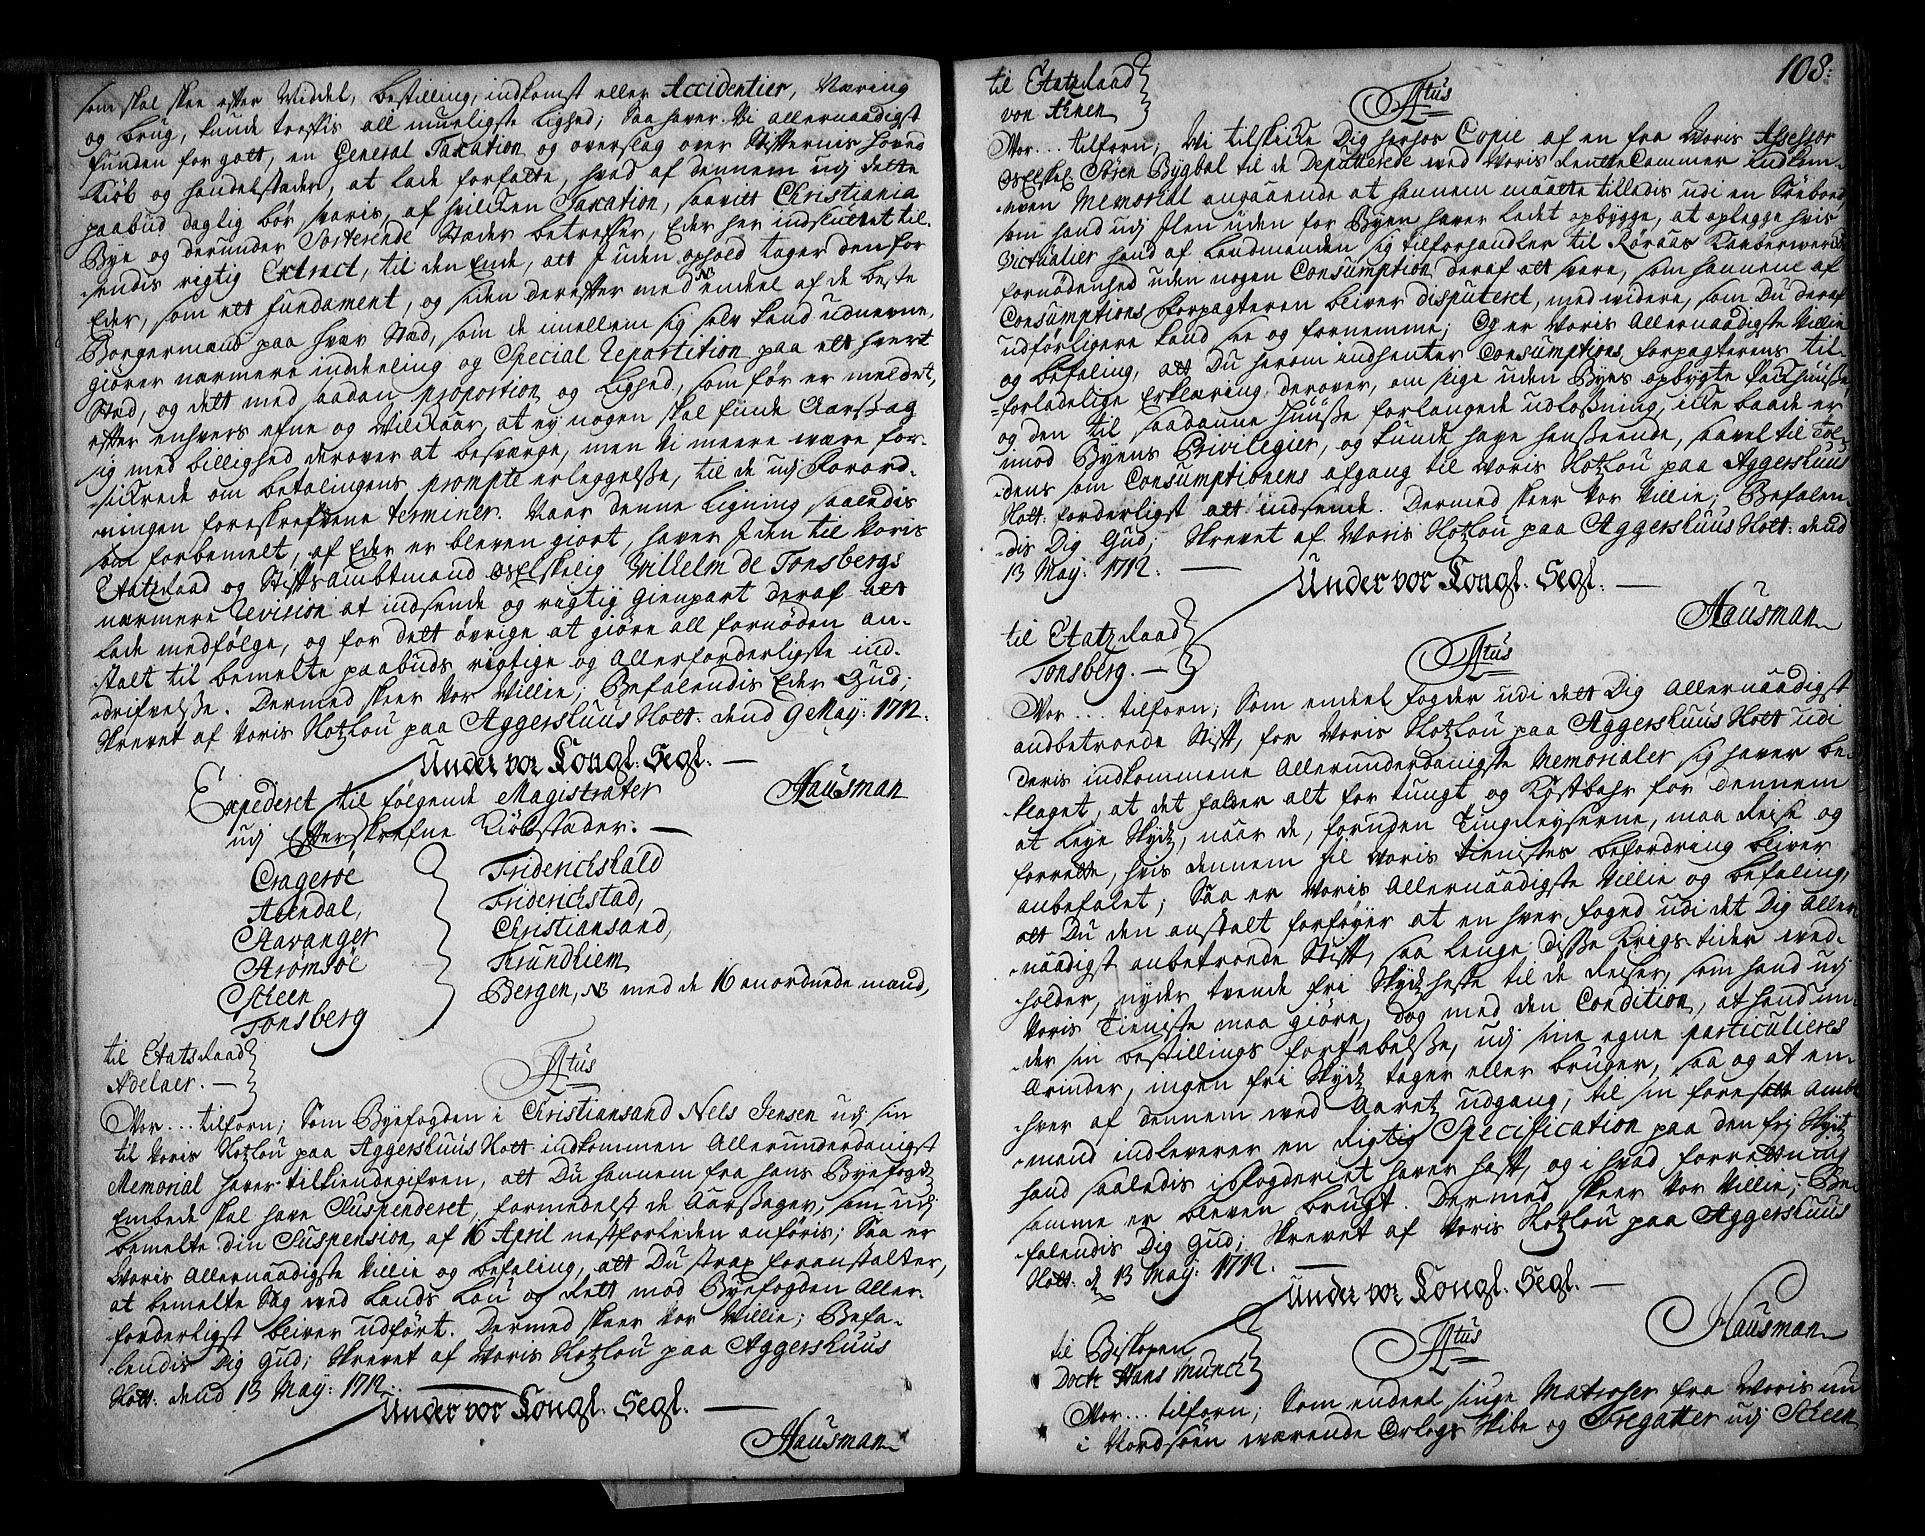 som skal skee efter Middel, bestilling, indkomst eller Accidentier, Næring
og brug, kunde treffis all mueligste lighed; Saa haver Vi allernaadigst
funden for gott, en General Taxation og overslag over Stifternis hoved
Kiøb og handelstæder, at lade forfatte, hvad af dennem udj dette
paabud daglig bør svaris, af hvilcken Taxation, saavitt Christiania
Bye og derunder Sorterende Stæder betreffer, Eder her indsluttet til-
sendis rigtig Extract, til den Ende, att I uden ophold tager den for
Eder, som ett fundament, og siden derefter med endeel af de beste
Borgermænd paa hver Stæd, som de imellem sig selv kand udnevne,
giører nærmere inddeeling og Special Repartition paa ett hvert
Stæd, og dett med saadan proportion og Lighed, som før er meldet,
efter enhvers efne og Vilkaar, at ey nogen skal finde Aarsag
sig med billighed derover at besværge, men Vi meere være for-
sickrede om betalingens prompte erleggelse, til de udj Forord-
ningen foreskrefdne terminer. Naar denne Ligning saaledis
som forbemelt, af Eder er bleven giort, haver I den til Voris
Etatzraad og Stiftsambtmand osElskelig Vilhelm de Tonsbergs
nærmere Revision at indsende og rigtig gienpart deraf att
lade medfølge, og for dett øvrige at giøre all fornøden an-
stalt til bemelte paabuds rigtige og allerforderligste ind-
drifvelse. Dermed skeer Vor Villie; Befalendis Eder Gud;
Skrevet af Voris Slotzlou paa Aggershuus Slott. dend 9 May: 1712.
Under vor Kongl. Segl.
Hausman
Expederet til følgende Magistrater
udj Efterskrefne Kiøbstæder:
Cragerøe Friderichshald
Arendal, Friderichstad,
Stavanger Christiansand,
Strømsøe Trundhiem
Skeen Bergen, NB med de 16 anordnede mænd,
Tonsberg
til Etatsraad
Adelaer.
Ftus
Vor... tilforn; Som Byefogden i Christiansand Nels Jensen udj sin
til Voris Slotzlou paa Aggershuus Slott indkommen Allerunderdanigst
Memorial haver tilkiendegifven, att Du hannem fra hans Byefogdz
Embede skal have Suspenderet, formedelst de Aarsager, som udj
bemelte din Suspension af 16 April nestforleden anføris; Saa er
Voris Allernaadigste Villie og befaling, att Du strax foranstalter,
at bemelte Sag ved Lands Lou og Rett mod Byefogden Aller-
forderligst bliver udført. Dermed skeer Vor Villie; Befa-
lendis Dig Gud; Skrevet af Voris Slotzlou paa Aggershuus
Slott. dend 13 May: 1712.
Under vor Kongl. Segl.
Hausman
108:
til Etatzraad
von Ahnen
Ftus
Vor... tilforn; Wi tilskicke Dig herhos Copie af en fra Voris Assessor
osElskel. Søren Bygbal til de Deputerede ved Voris RenteCammer indkom-
-men Memorial angaaende at hannem maatte tilledis udi en Søeboed,
som hand udj Ilen uden for Byen haver ladet opbygge, at oplegge hvis
Victualier hand af Landmanden sig tilforhandler til Røraas Kaaberwercks
fornødenhed uden nogen Consumption deraf att svare, som hannem af
Consumptions Forpagteren bliver disputeret, med widere, som Du deraf
udførligere kand see og fornemme; Og er Voris Allernaadigste Villie
og befaling, att Du herom indhenter Consumptions forpagterens til-
forladelige Erklæring derover, om slige uden Byen opbygte Packhuuse,
og den til saadanne Huuse forlangede udlosning, ikke baade er
imod Byens Privilegier, og kunde have henseende, saavel til Tol-
dens som Consumptionens afgang til Voris Slotzlou paa Aggershuus
Slott. forderligst att indsende. Dermed skeer Vor Villie; Befalen-
dis Dig Gud; Skrevet af Voris Slotzlou paa Aggershuus Slott. dend
13 May: 1712.
Under vor Kongl. Segl.
Hausman
til Etatzraad
Tonsberg.
Ftus
Vor... tilforn; Som endeel fogder udi dett Dig Allernaadigst
andbetroede Stift, for Voris Slotzlou paa Aggershuus Slott udi
deris indkommene Allerunderdanigste Memorialer sig haver be-
klaget, at det falder alt for tungt og Kostbahr for dennem
at leye Skydz, naar de, foruden Tingreyserne, maa reise og
forrette, hvis dennem til Voris tienistes befordring bliver
anbefalet; Saa er Voris Allernaadigste Villie og befaling,
att Du den anstalt forføyer at en hver foged udi det Dig Aller-
naadigst anbetroede Stift, saa lenge disse Krigs-tider ved-
holder, nyder tvende fri Skydzheste til de Reiser, som hand udj
Voris Tieniste maa giøre, dog med den Condition, at hand un-
der sin bestillings fortabelse, udj sine egne particulieres
Ærinder, ingen fri Skydz tager eller bruger, saa og at en-
hver af dennem ved Aaretz udgang, til sin foresatte Ambt-
mand indleverer en Rigtig Specification paa den frj Skydz
hand saaledis i Fogderiet haver haft, og i hvad forretning
samme er bleven brugt. Dermed skeer Vor Villie; Be-
falendis Dig Gud; Skrevet af Voris Slotzlou paa Aggershuus
Slott. d. 13 May: 1712.
Under vor Kongl. Segl.
Hausman
til Biskopen
Doctr Hans Munch
Ftus
Vor... tilforn; Som endeel siuge Matroser fra Voris nu
i Nordsøen værende Orlogs Skibe og Fregatter udj Skeen